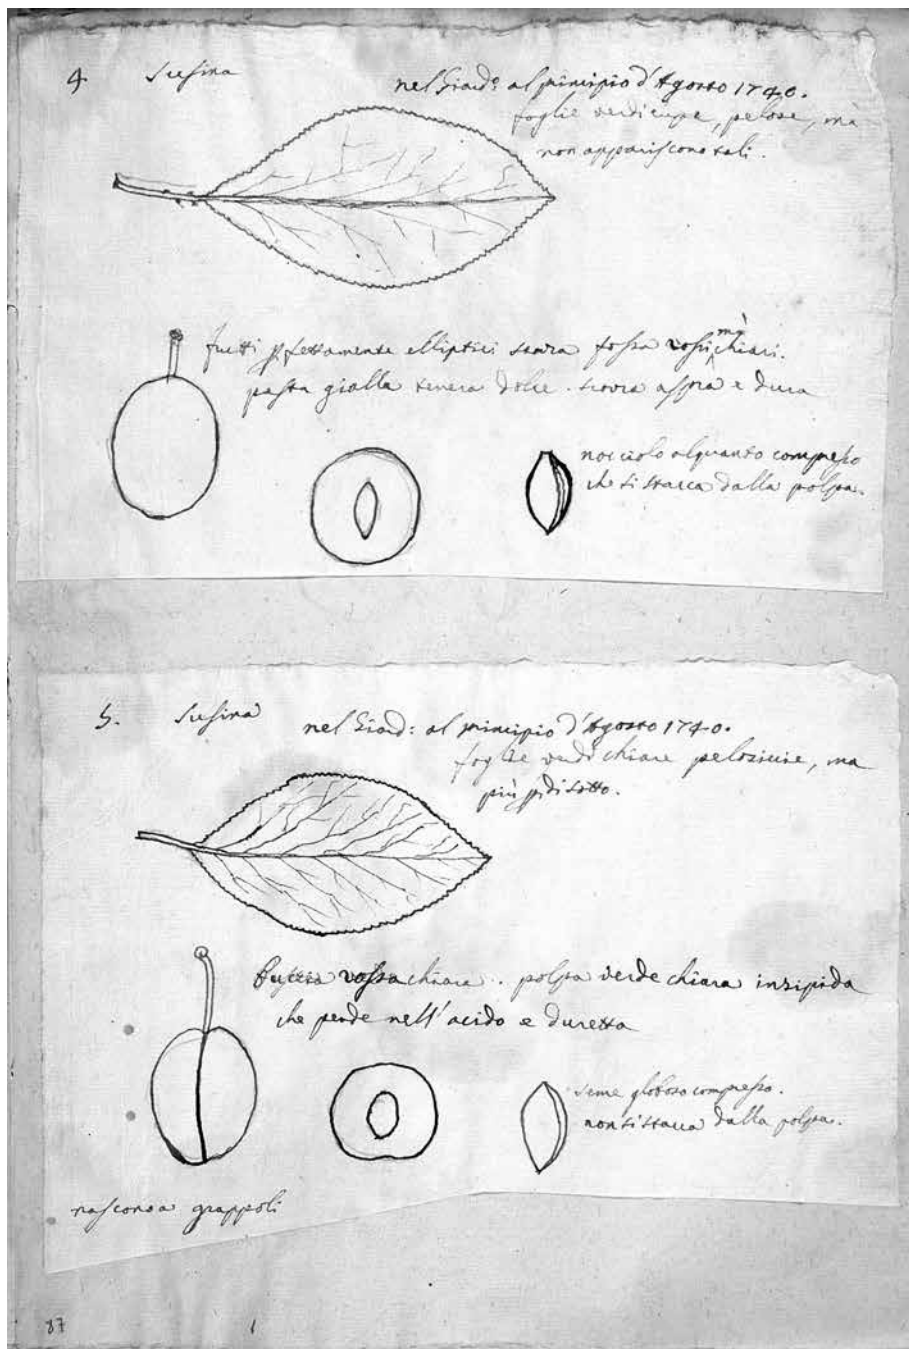 4. Susina
nel Giard: al principio d'Agosto 1740.
foglie verdicupe, pelose, mà
non appariscono tali.
frutti pfettamente elliptici senza fossa rossi mà chiari.
pasta gialla tenera dolce. scorza assra e dura
nocciolo alquanto compresso
che si stacca dalla polpa.
5. Susina
nel Giard: al principio d'Agosto 1740.
foglie verdi chiare pelosicine, ma
più pdisotto.
Buccia rossa chiara. polpa verde chiara insipida
che pende nell'acido e duretta
seme globoso compresso.
non si stacca dalla polpa.
nascono a grappoli
87 1